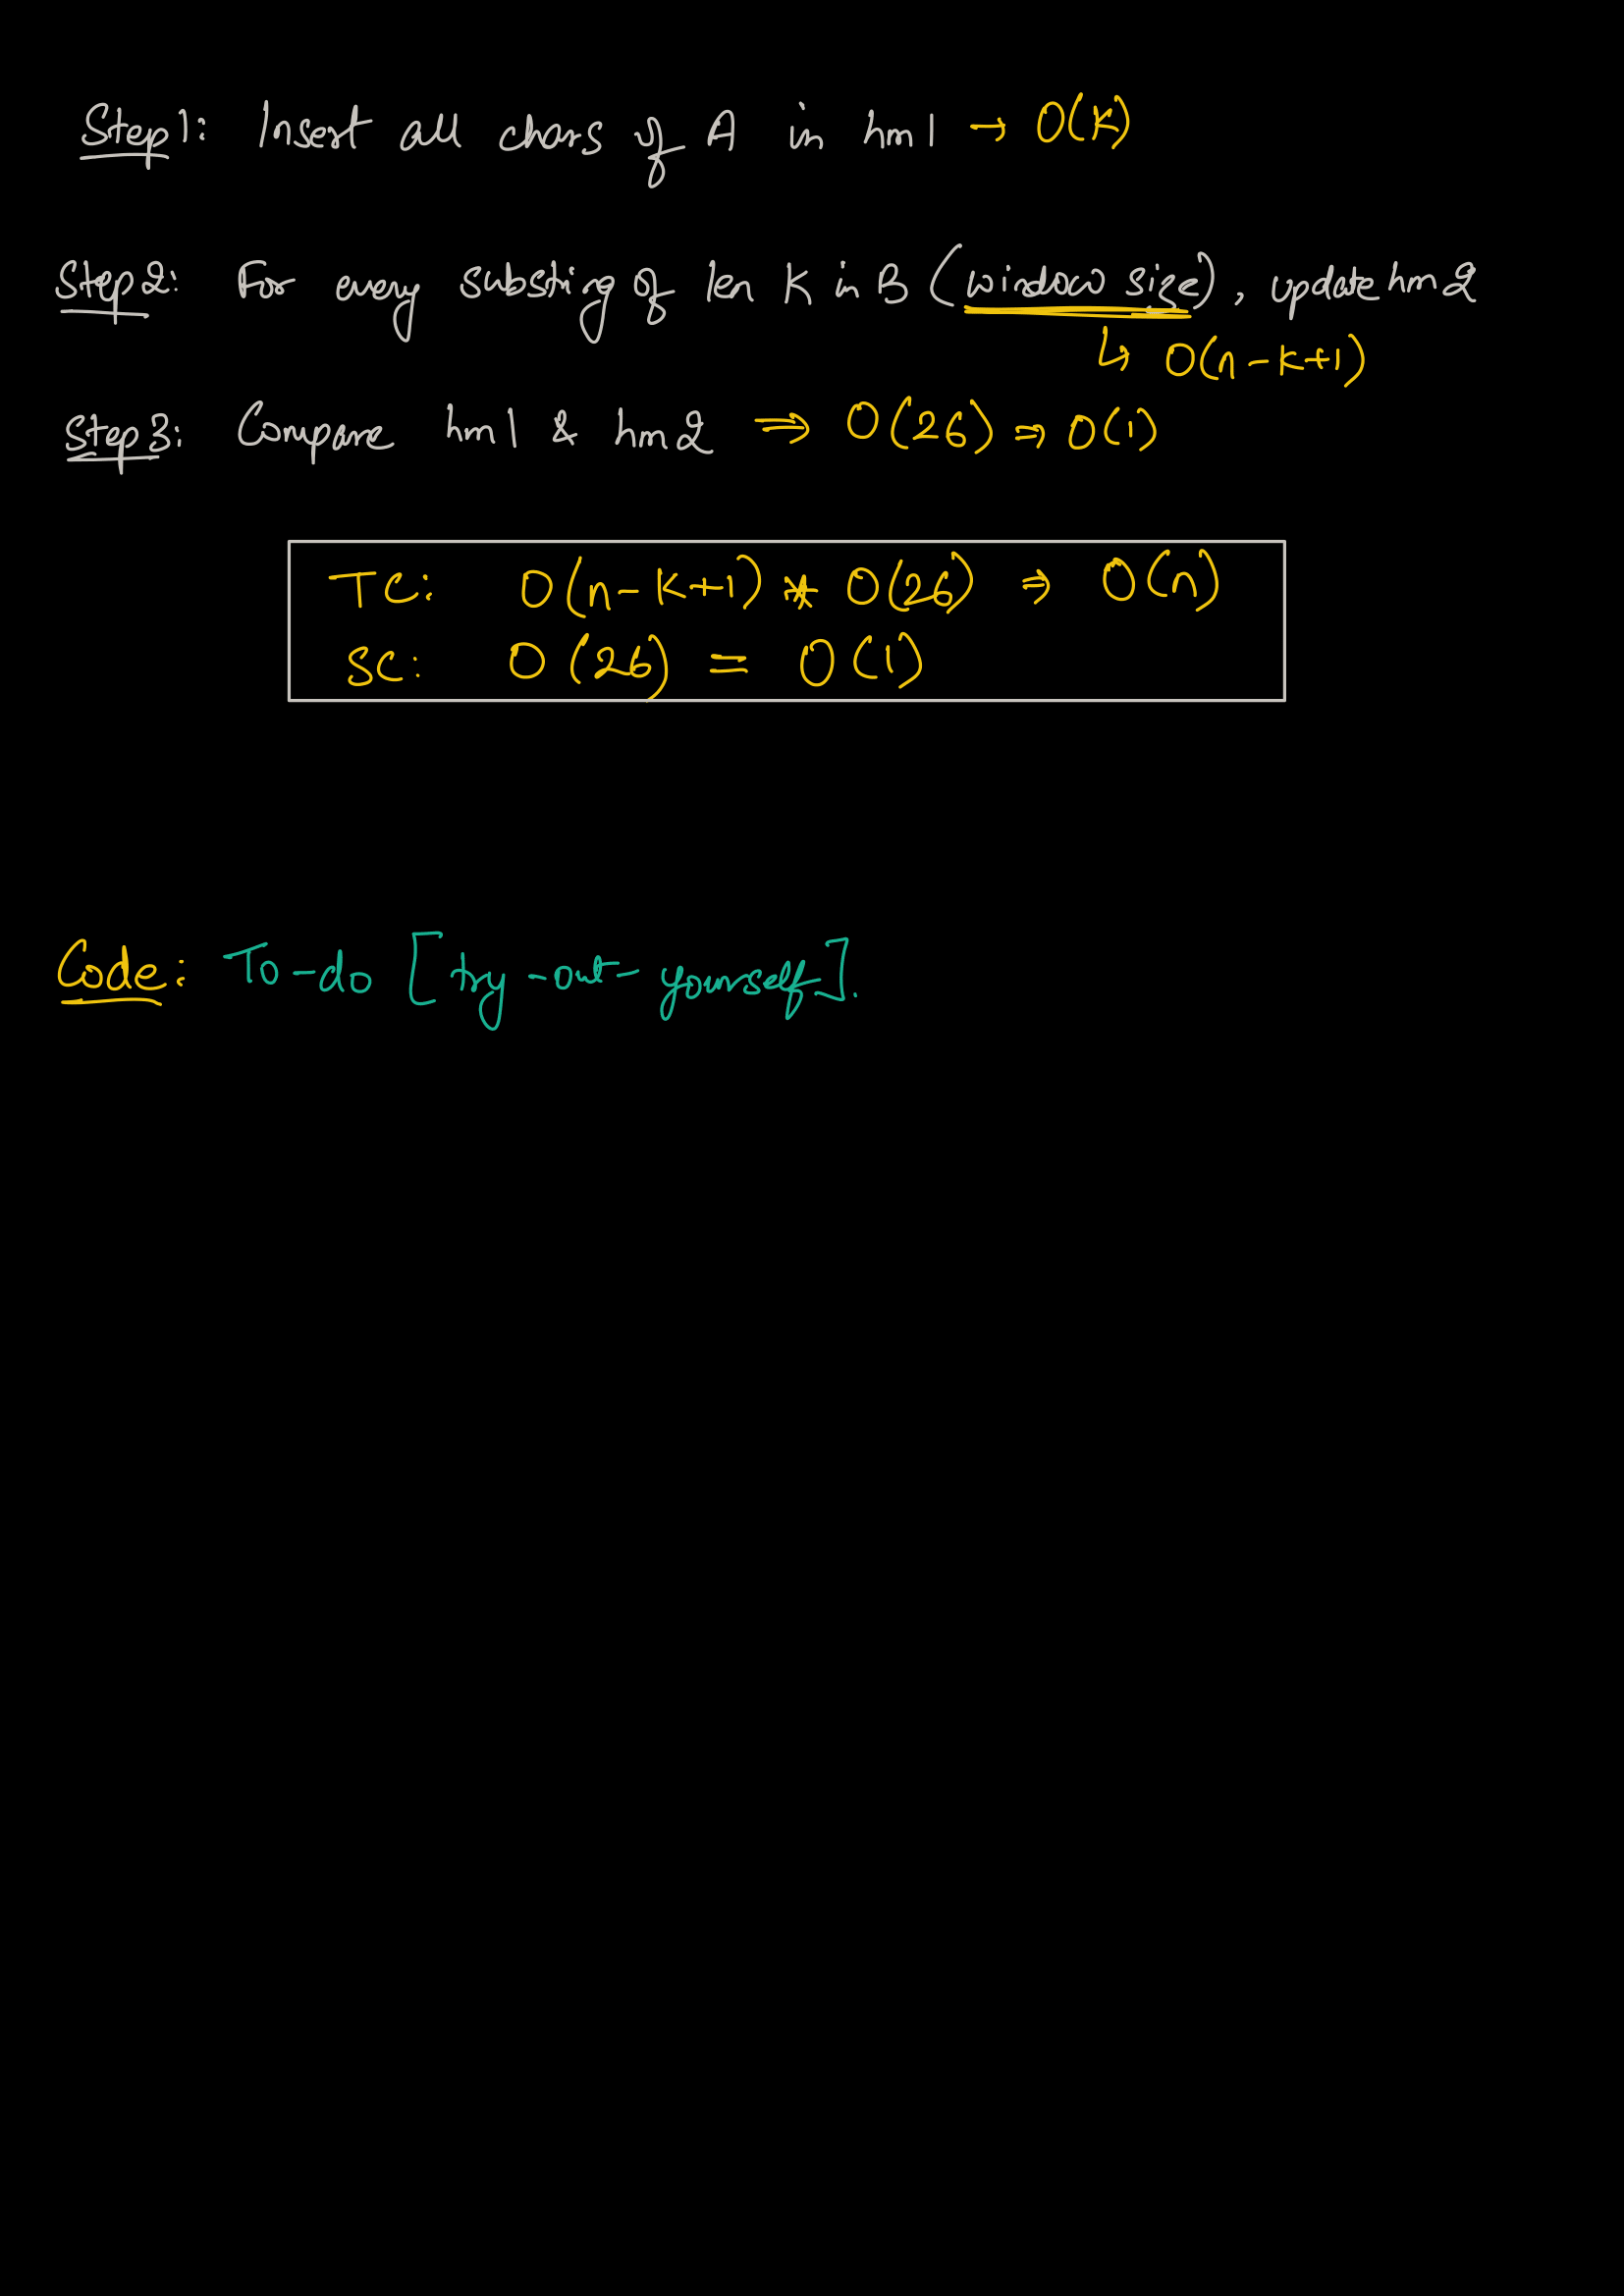 Step1: Insert all chars of A in hm1 → O(K)
Step2: For every substring of len K in B (window size), update hm2
↳ O(n-K+1)
Step3: Compare hm1 & hm2 ⇒ O(26) ⇒ O(1)
TC: O(n-K+1) * O(26) ⇒ O(n)
SC: O(26) = O(1)
Code: To-do [try-out-yourself].